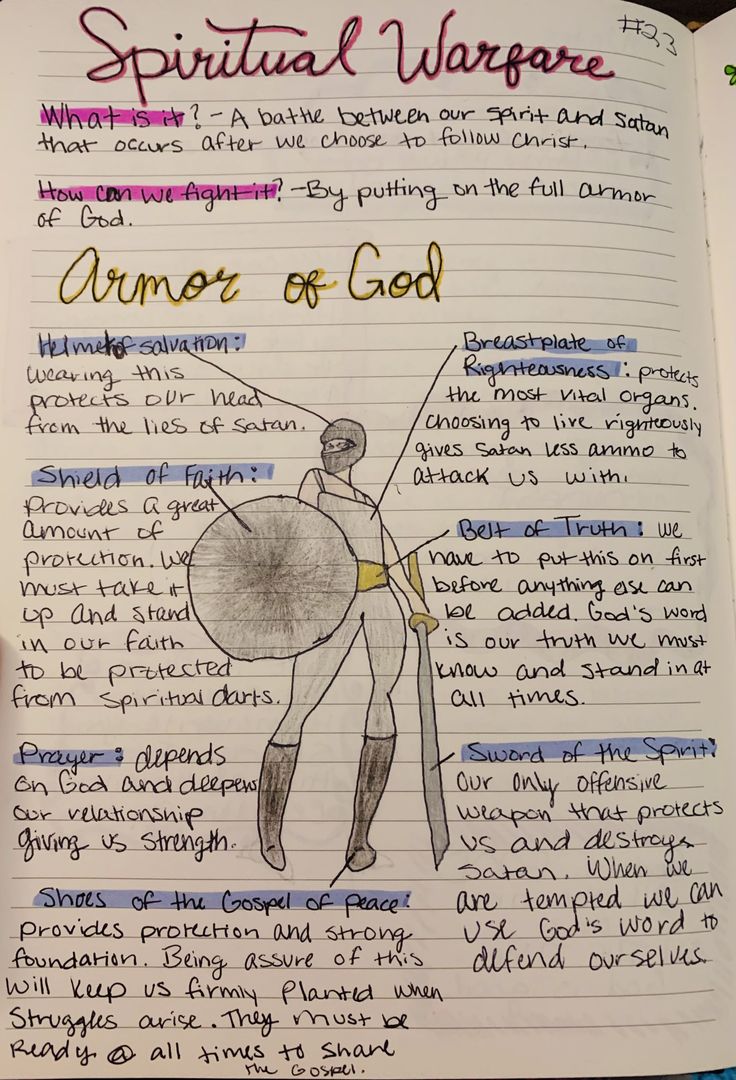 #23
Spiritual Warfare
What is it? - A battle between our spirit and Satan
that occurs after we choose to follow Christ.
How can we fight it? - By putting on the full armor
of God.
Armor of God
Helmet of salvation:
wearing this
protects our head
from the lies of Satan.
Shield of Faith:
provides a great
amount of
protection. We
must take it
up and stand
in our faith
to be protected
from spiritual darts.
Prayer: depends
on God and deepens
our relationship
giving us strength.
Shoes of the Gospel of peace:
provides protection and strong
foundation. Being assure of this
will keep us firmly planted when
struggles arise. They must be
Ready @ all times to share
the Gospel.
Breastplate of
Righteousness: protects
the most vital organs.
Choosing to live righteously
gives Satan less ammo to
attack us with.
Belt of Truth: we
have to put this on first
before anything else can
be added. God's word
is our truth we must
know and stand in at
all times.
Sword of the Spirit:
Our only offensive
weapon that protects
us and destroys
Satan. When we
are tempted we can
use God's word to
defend ourselves.